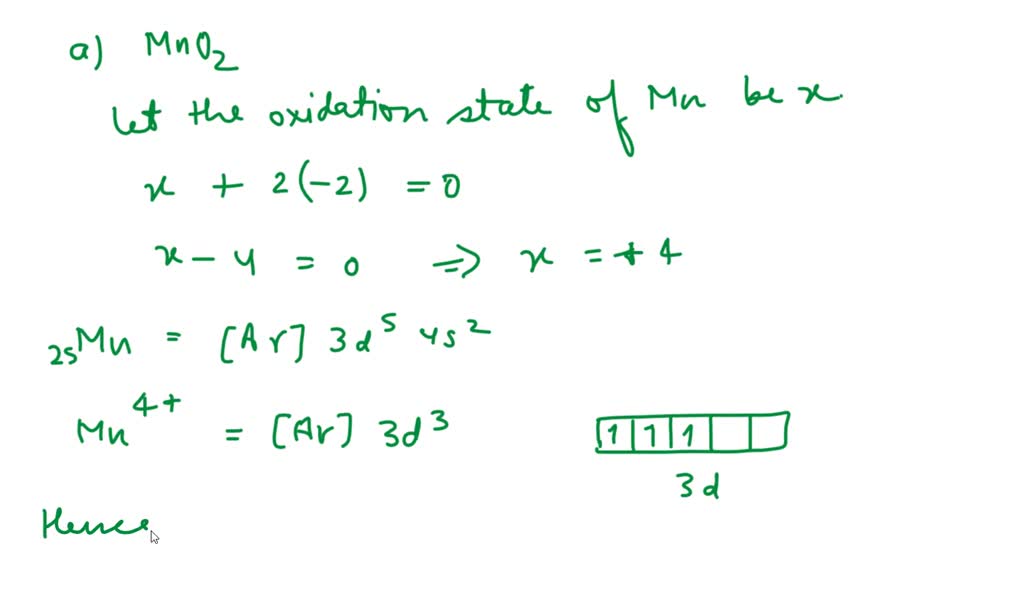 a) MnO₂
Let the oxidation state of Mn be x.
x + 2(-2) = 0
x - 4 = 0 ⇒ x = +4
₂₅Mn = [Ar] 3d⁵ 4s²
Mn⁴⁺ = [Ar] 3d³
1 1 1
3d
Hence